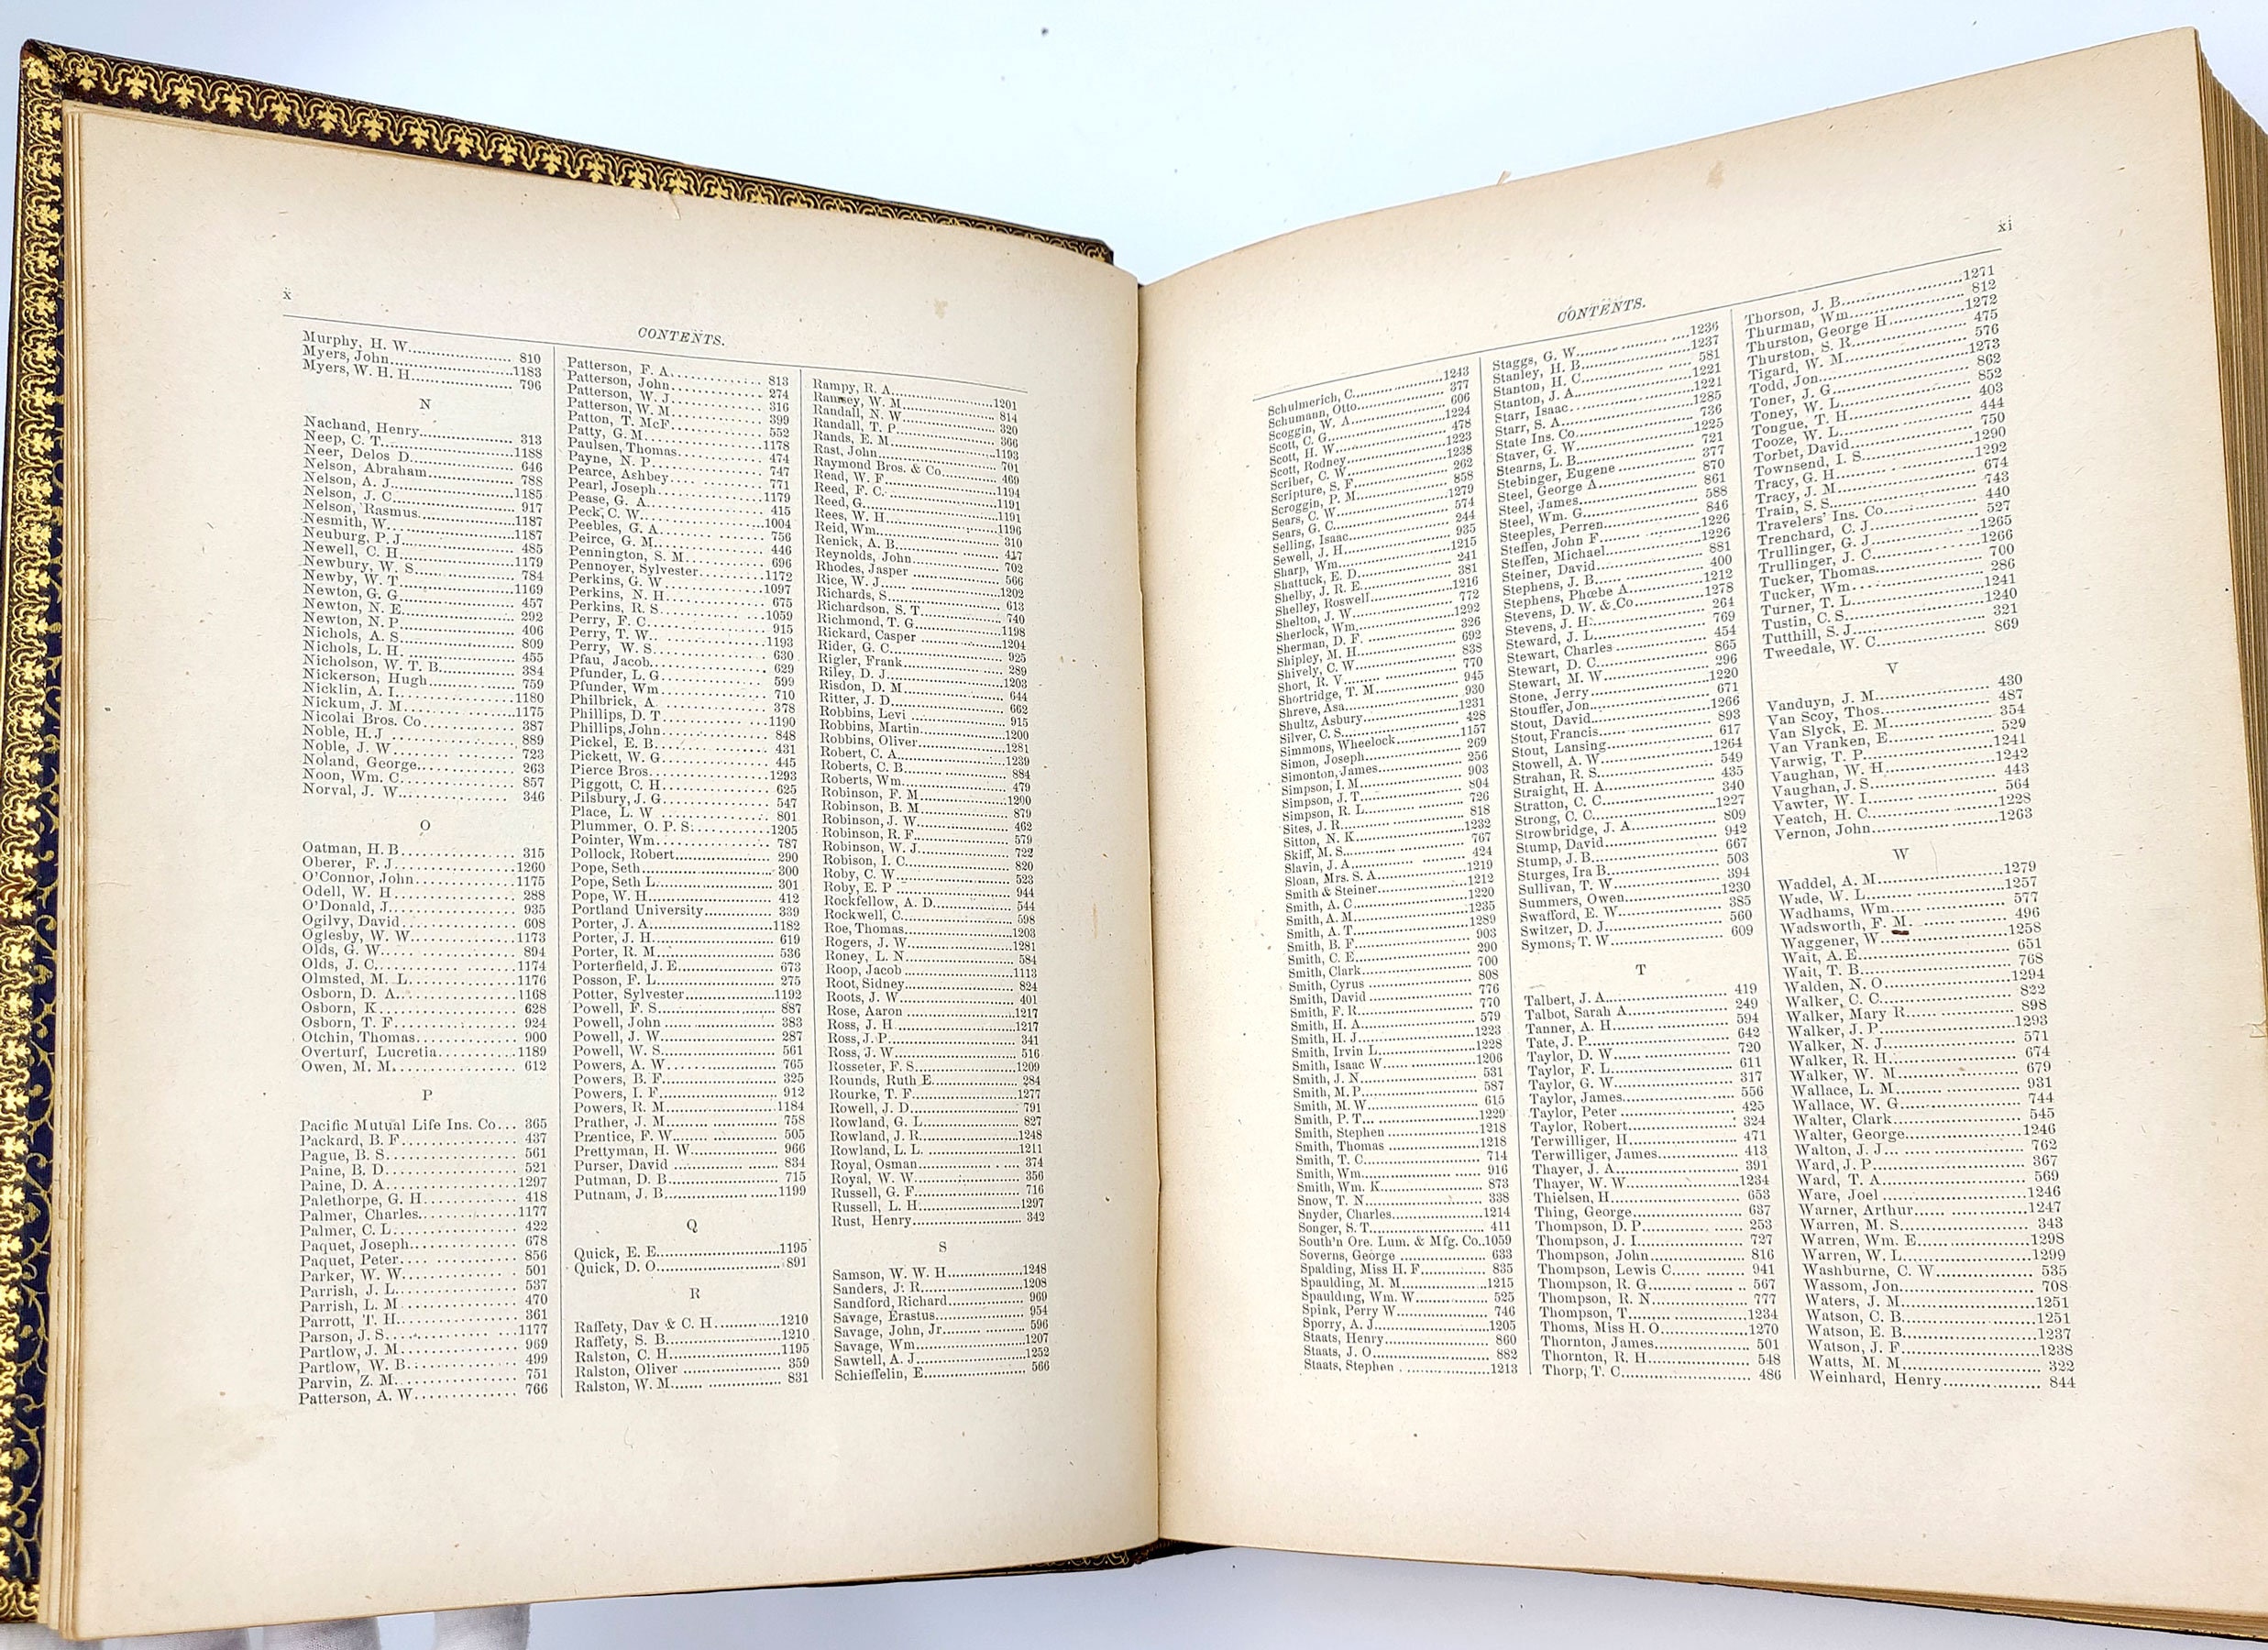 x
CONTENTS.
Murphy, H. W. 810
Myers, John 1183
Myers, W. H. H. 796
N
Nachand, Henry 313
Neep, C. T. 1188
Neer, Delos D. 646
Nelson, Abraham 788
Nelson, A. J. 1185
Nelson, J. C. 917
Nelson, Rasmus 1187
Nesmith, W. 1187
Neuburg, P. J. 485
Newell, C. H. 1179
Newbury, W. S. 784
Newby, W. T. 1169
Newton, G. G. 457
Newton, N. E. 292
Newton, N. P. 406
Nichols, A. S. 809
Nichols, L. H. 455
Nicholson, W. T. B. 384
Nickerson, Hugh 759
Nicklin, A. I. 1180
Nickum, J. M. 1175
Nicolai Bros. Co. 387
Noble, H. J. 889
Noble, J. W. 723
Noland, George 263
Noon, Wm. C. 857
Norval, J. W. 346
O
Oatman, H. B. 315
Oberer, F. J. 1260
O'Connor, John 1175
Odell, W. H. 288
O'Donald, J. 935
Ogilvy, David 608
Oglesby, W. W. 1173
Olds, G. W. 894
Olds, J. C. 1174
Olmsted, M. L. 1176
Osborn, D. A. 1168
Osborn, K. 628
Osborn, T. F. 924
Otchin, Thomas 900
Overturf, Lucretia 1189
Owen, M. M. 612
P
Pacific Mutual Life Ins. Co. 365
Packard, B. F. 437
Pague, B. S. 561
Paine, B. D. 521
Paine, D. A. 1297
Palethorpe, G. H. 418
Palmer, Charles 1177
Palmer, C. L. 422
Paquet, Joseph 678
Paquet, Peter 856
Parker, W. W. 501
Parrish, J. L. 537
Parrish, L. M. 470
Parrott, T. H. 361
Parson, J. S. 1177
Partlow, J. M. 969
Partlow, W. B. 499
Parvin, Z. M. 751
Patterson, A. W. 766
Patterson, F. A. 813
Patterson, John 274
Patterson, W. J. 316
Patterson, W. M. 399
Patton, T. McF. 552
Patty, G. M. 1178
Paulsen, Thomas 474
Payne, N. P. 747
Pearce, Ashbey 771
Pearl, Joseph 1179
Pease, G. A. 415
Peck, C. W. 1004
Peebles, G. A. 756
Peirce, G. M. 446
Pennington, S. M. 696
Pennoyer, Sylvester 1172
Perkins, G. W. 1097
Perkins, N. H. 675
Perkins, R. S. 1059
Perry, F. C. 915
Perry, T. W. 1193
Perry, W. S. 630
Pfau, Jacob 629
Pfunder, L. G. 599
Pfunder, Wm. 710
Philbrick, A. 378
Phillips, D. T. 1190
Phillips, John 848
Pickel, E. B. 431
Pickett, W. G. 445
Pierce Bros. 1293
Piggott, C. H. 625
Pilsbury, J. G. 547
Place, L. W. 801
Plummer, O. P. S. 1205
Pointer, Wm. 787
Pollock, Robert 290
Pope, Seth 300
Pope, Seth L. 301
Pope, W. H. 412
Portland University 339
Porter, J. A. 1182
Porter, J. H. 619
Porter, R. M. 536
Porterfield, J. E. 673
Posson, F. L. 275
Potter, Sylvester 1192
Powell, F. S. 887
Powell, John 383
Powell, J. W. 287
Powell, W. S. 561
Powers, A. W. 765
Powers, B. F. 325
Powers, I. F. 912
Powers, R. M. 1184
Prather, J. M. 758
Prentice, F. W. 505
Prettyman, H. W. 966
Purser, David 834
Putman, D. B. 715
Putnam, J. B. 1199
Q
Quick, E. E. 1195
Quick, D. O. 891
R
Raffety, Dav & C. H. 1210
Raffety, S. B. 1210
Ralston, C. H. 1195
Ralston, Oliver 359
Ralston, W. M. 831
Rampy, R. A. 1201
Ramsey, W. M. 814
Randall, N. W. 320
Randall, T. P. 366
Rands, E. M. 1193
Rast, John 701
Raymond Bros. & Co. 469
Read, W. F. 1194
Reed, F. C. 1191
Reed, G. 1191
Rees, W. H. 1196
Reid, Wm. 310
Renick, A. B. 417
Reynolds, John 702
Rhodes, Jasper 566
Rice, W. J. 1202
Richards, S. 613
Richardson, S. T. 740
Richmond, T. G. 1198
Rickard, Casper 1204
Rider, G. C. 925
Rigler, Frank 289
Riley, D. J. 1203
Risdon, D. M. 644
Ritter, J. D. 662
Robbins, Levi 915
Robbins, Martin 1200
Robbins, Oliver 1281
Robert, C. A. 1239
Roberts, C. B. 884
Roberts, Wm. 479
Robinson, F. M. 1200
Robinson, B. M. 879
Robinson, J. W. 462
Robinson, R. F. 579
Robinson, W. J. 722
Robison, I. C. 820
Roby, C. W. 523
Roby, E. P. 944
Rockfellow, A. D. 544
Rockwell, C. 598
Roe, Thomas 1203
Rogers, J. W. 1281
Roney, L. N. 584
Roop, Jacob 1113
Root, Sidney 824
Roots, J. W. 401
Rose, Aaron 1217
Ross, J. H. 1217
Ross, J. P. 341
Ross, J. W. 516
Rosseter, F. S. 1209
Rounds, Ruth E. 284
Rourke, T. F. 1277
Rowell, J. D. 791
Rowland, G. L. 827
Rowland, J. R. 1248
Rowland, L. L. 1211
Royal, Osman 374
Royal, W. W. 356
Russell, G. F. 716
Russell, L. H. 1297
Rust, Henry 342
S
Samson, W. W. H. 1248
Sanders, J. R. 1208
Sandford, Richard 969
Savage, Erastus 954
Savage, John, Jr. 596
Savage, Wm. 1207
Sawtell, A. J. 1252
Schieffelin, E. 566
xi
CONTENTS.
Schulmerich, C. 1243
Schumann, Otto 377
Scoggin, W. A. 606
Scott, C. G. 1224
Scott, H. W. 478
Scott, Rodney 1223
Scriber, C. W. 1238
Scripture, S. F. 262
Scroggin, P. M. 858
Sears, C. W. 1279
Sears, G. C. 574
Selling, Isaac 244
Sewell, J. H. 935
Sharp, Wm. 1215
Shattuck, E. D. 241
Shelby, J. R. E. 381
Shelley, Roswell 1216
Shelton, J. W. 772
Sherlock, Wm. 1292
Sherman, D. F. 326
Shipley, M. H. 692
Shively, C. W. 838
Short, R. V. 770
Shortridge, T. M. 945
Shreve, Asa 930
Shultz, Asbury 1231
Silver, C. S. 428
Simmons, Wheelock 1157
Simon, Joseph 269
Simonton, James 256
Simpson, I. M. 903
Simpson, J. T. 804
Simpson, R. L. 726
Sites, J. R. 818
Sitton, N. K. 1232
Skiff, M. S. 767
Slavin, J. A. 424
Sloan, Mrs. S. A. 1219
Smith & Steiner 1212
Smith, A. C. 1220
Smith, A. M. 1235
Smith, A. T. 1289
Smith, B. F. 903
Smith, C. E. 290
Smith, Clark 700
Smith, Cyrus 808
Smith, David 776
Smith, F. R. 770
Smith, H. A. 579
Smith, H. J. 1223
Smith, Irvin L. 1228
Smith, Isaac W. 1206
Smith, J. N. 531
Smith, M. P. 587
Smith, M. W. 615
Smith, P. T. 1229
Smith, Stephen 1218
Smith, Thomas 1218
Smith, T. C. 714
Smith, Wm. 916
Smith, Wm. K. 873
Snow, T. N. 338
Snyder, Charles 1214
Songer, S. T. 411
South'n Ore. Lum. & Mfg. Co. 1059
Soverns, George 633
Spalding, Miss H. F. 835
Spaulding, M. M. 1215
Spaulding, Wm. W. 525
Spink, Perry W. 746
Sporry, A. J. 1205
Staats, Henry 860
Staats, J. O. 882
Staats, Stephen 1213
Staggs, G. W. 1236
Stanley, H. B. 1237
Stanton, H. C. 581
Stanton, J. A. 1221
Starr, Isaac 1221
Starr, S. A. 1285
State Ins. Co. 736
Staver, G. W. 1225
Stearns, L. B. 721
Stebinger, Eugene 377
Steel, George A. 870
Steel, James 861
Steel, Wm. G. 588
Steeples, Perren 846
Steffen, John F. 1226
Steffen, Michael 1226
Steiner, David 881
Stephens, J. B. 400
Stephens, Phœbe A. 1212
Stevens, D. W. & Co. 1278
Stevens, J. H. 264
Steward, J. L. 769
Stewart, Charles 454
Stewart, D. C. 865
Stewart, M. W. 296
Stone, Jerry 1220
Stouffer, Jon 671
Stout, David 1266
Stout, Francis 893
Stout, Lansing 617
Stowell, A. W. 1264
Strahan, R. S. 549
Straight, H. A. 435
Stratton, C. C. 340
Strong, C. C. 1227
Strowbridge, J. A. 809
Stump, David 942
Stump, J. B. 667
Sturges, Ira B. 503
Sullivan, T. W. 394
Summers, Owen 1230
Swafford, E. W. 385
Switzer, D. J. 560
Symons, T. W. 609
T
Talbert, J. A. 419
Talbot, Sarah A. 249
Tanner, A. H. 594
Tate, J. P. 642
Taylor, D. W. 720
Taylor, F. L. 611
Taylor, G. W. 317
Taylor, James 556
Taylor, Peter 425
Taylor, Robert 324
Terwilliger, H. 471
Terwilliger, James 413
Thayer, J. A. 391
Thayer, W. W. 1234
Thielsen, H. 653
Thing, George 637
Thompson, D. P. 253
Thompson, J. I. 727
Thompson, John 816
Thompson, Lewis C. 941
Thompson, R. G. 567
Thompson, R. N. 777
Thompson, T. 1234
Thoms, Miss H. O. 1270
Thornton, James 501
Thornton, R. H. 548
Thorp, T. C. 486
Thorson, J. B. 1271
Thurman, Wm. 812
Thurston, George H. 1272
Thurston, S. R. 475
Tigard, W. M. 576
Todd, Jon 1273
Toner, J. G. 862
Toney, W. L. 852
Tongue, T. H. 403
Tooze, W. L. 444
Torbet, David 750
Townsend, I. S. 1290
Tracy, G. H. 1292
Tracy, J. M. 674
Train, S. S. 743
Travelers' Ins. Co. 440
Trenchard, C. J. 527
Trullinger, G. J. 1265
Trullinger, J. C. 1266
Tucker, Thomas 700
Tucker, Wm. 286
Turner, T. L. 1241
Tustin, C. S. 1240
Tutthill, S. J. 321
Tweedale, W. C. 869
V
Vanduyn, J. M. 430
Van Scoy, Thos. 487
Van Slyck, E. M. 354
Van Vranken, E. 529
Varwig, T. P. 1241
Vaughan, W. H. 1242
Vaughan, J. S. 443
Vawter, W. I. 564
Veatch, H. C. 1228
Vernon, John 1263
W
Waddel, A. M. 1279
Wade, W. L. 1257
Wadhams, Wm. 577
Wadsworth, F. M. 496
Waggener, W. 1258
Wait, A. E. 651
Wait, T. B. 768
Walden, N. O. 1294
Walker, C. C. 822
Walker, Mary R. 898
Walker, J. P. 1293
Walker, N. J. 571
Walker, R. H. 674
Walker, W. M. 679
Wallace, L. M. 931
Wallace, W. G. 744
Walter, Clark 545
Walter, George 1246
Walton, J. J. 762
Ward, J. P. 367
Ward, T. A. 569
Ware, Joel 1246
Warner, Arthur 1247
Warren, M. S. 343
Warren, Wm. E. 1298
Warren, W. L. 1299
Washburne, C. W. 535
Wassom, Jon 708
Waters, J. M. 1251
Watson, C. B. 1251
Watson, E. B. 1237
Watson, J. F. 1238
Watts, M. M. 322
Weinhard, Henry 844